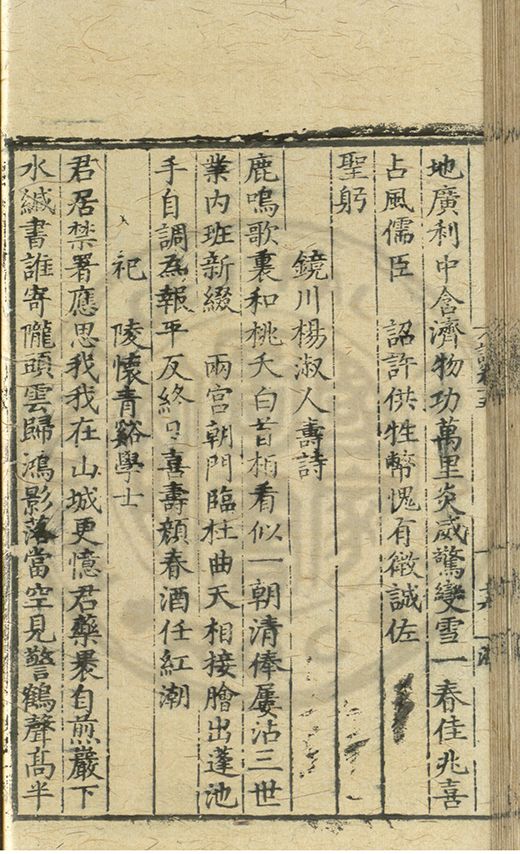 地廣利中含濟物功萬里炎威驚變雪一春佳兆喜
占風儒臣　詔許供牲幣愧有微誠佐
聖躬
鏡川楊淑人壽詩
鹿鳴歌裏和桃夭白首相看似一朝清俸屢沾三世
業內班新綴　兩宮朝門臨杜曲天相接膾出蓬池
手自調為報平反終日喜壽顏春酒任紅潮
祀　陵懷青谿學士
君居禁署應思我我在山城更憶君藥裹自煎巖下
水緘書誰寄隴頭雲歸鴻影落當空見警鶴聲髙半